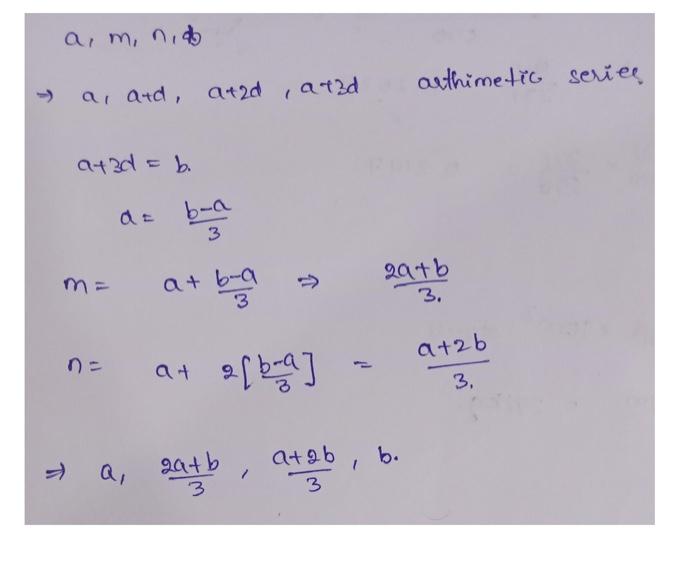 a, m, n, b
⇒ a, a+d, a+2d, a+3d arthimetic series
a+3d = b.
d = b-a/3
m = a + b-a/3 ⇒ 2a+b/3.
n = a + 2[b-a/3] = a+2b/3.
⇒ a, 2a+b/3, a+2b/3, b.